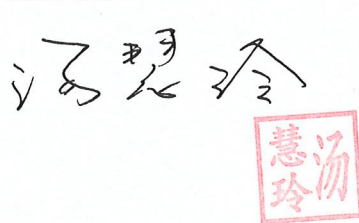 汤慧玲
汤慧玲